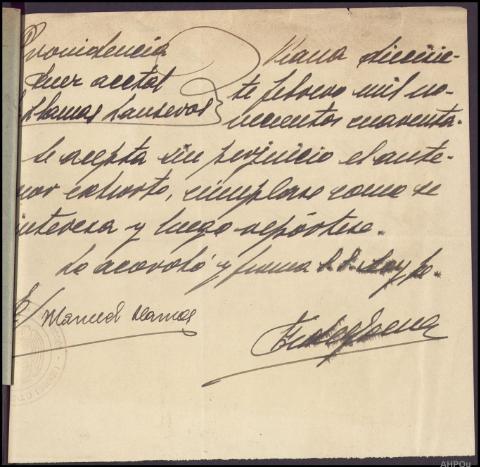 Providencia
Juez acctal
Llamas Lanseros
Viana diecisie-
te febrero mil no-
vecientos cuarenta.
Se acepta sin perjuicio el ante-
rior exhorto, cúmplase como se
interesa y luego repórtese.
Lo acordó y firma S. S. doy fe.
Manuel Llamas
AHPOu